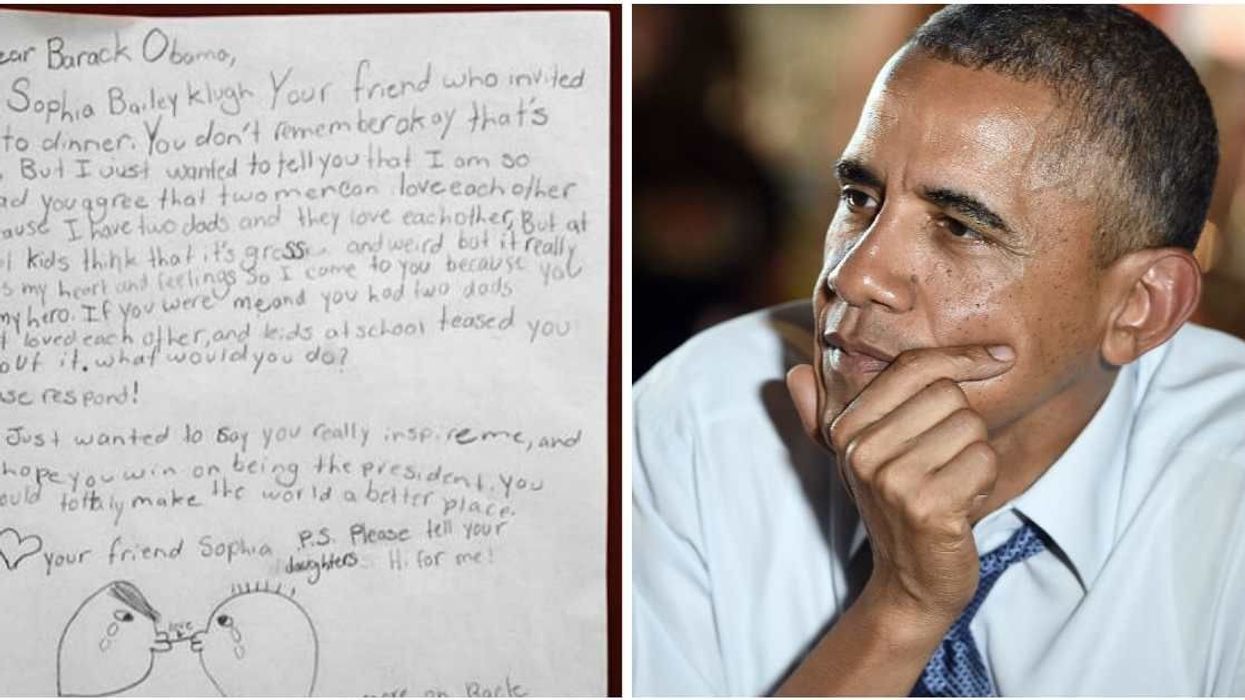 ear Barack Obama,
Sophia Bailey klugh Your friend who invited
to dinner. You don't remember okay that's
. But I Just wanted to tell you that I am so
ad you agree that two men can love each other
ause I have two dads and they love each other, But at
l kids think that it's gross and weird but it really
s my heart and feelings So I come to you because you
my hero. If you were me and you had two dads
t loved each other, and kids at school teased you
out it. what would you do?
ase respond!
Just wanted to say you really inspire me, and
hope you win on being the president. you
ould tottaly make the world a better place.
your friend Sophia
P.S. Please tell your
daughters Hi for me!
love
more on Back